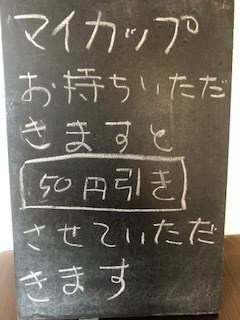 マイカップ
お持ちいただ
きますと
50円引き
させていただ
きます